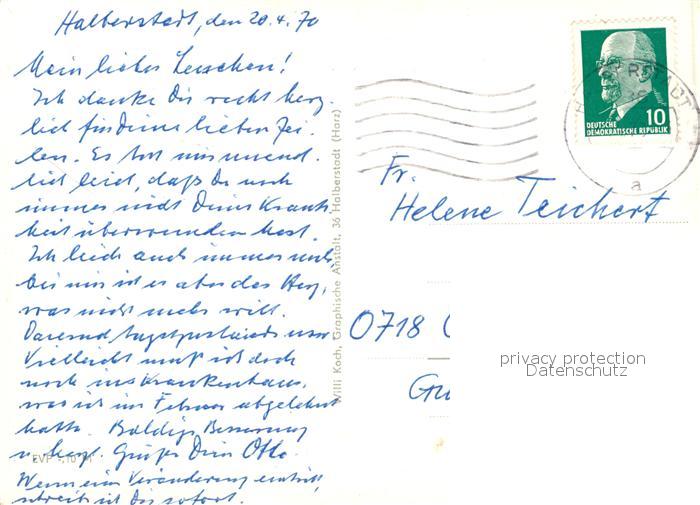 Halberstadt, den 20.4.70
Mein liebes Lenchen!
Ich danke Dir recht herz-
lich für Deine lieben Zei-
len. Es tut mir unend-
lich leid, daß Du noch
immer nicht Deine Krank-
heit überwunden hast.
Ich leide auch immer noch,
bei mir ist es aber das Herz,
was nicht mehr will.
Dauernd Angstzustände usw
Vielleicht muß ich doch
noch ins Krankenhaus,
was ich im Februar abgelehnt
hatte. Baldige Besserung
u. herzl. Grüße Dein Otto.
Wenn eine Veränderung eintritt,
schreibe ich Dir sofort.
EVP -,10 M
Willi Koch, Graphische Anstalt, 36 Halberstadt (Harz)
10
DEUTSCHE
DEMOKRATISCHE REPUBLIK
a
Fr.
Helene Teichert
0718
privacy protection
Datenschutz